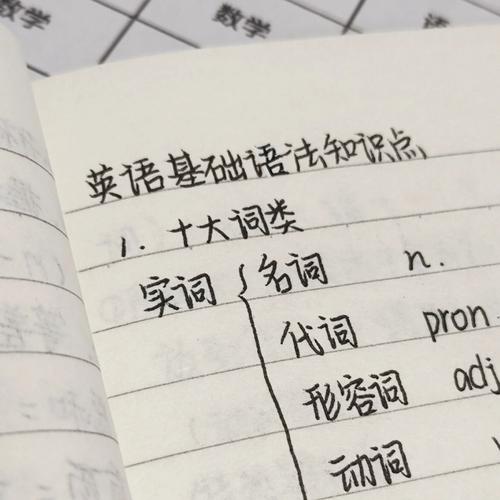 数学
数学
英语基础语法知识点
1. 十大词类
实词 { 名词 n.
代词 pron
形容词 adj
动词